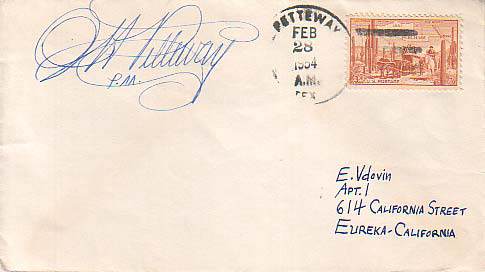 J H Petteway
P.M.
PETTEWAY
FEB
28
1954
A.M.
TEX.
U.S. POSTAGE
E. Vdovin
APT. 1
614 CALIFORNIA STREET
EUREKA-CALIFORNIA